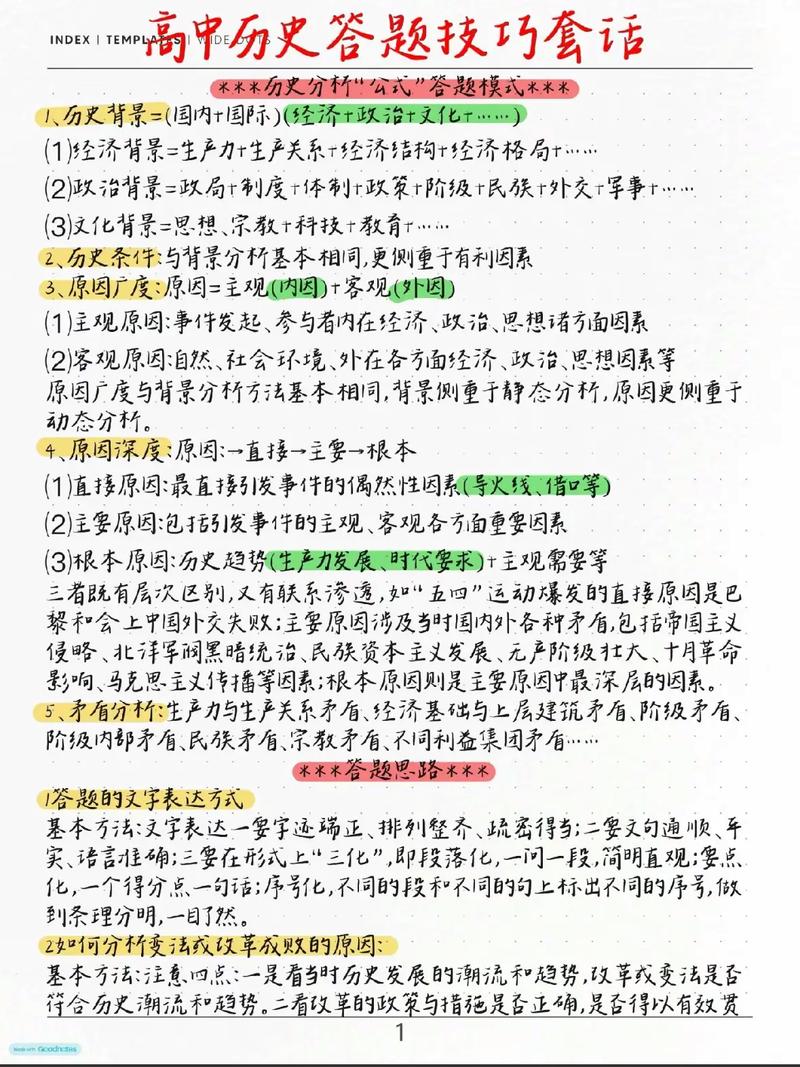 高中历史答题技巧套话
INDEX | TEMPLATES | WIDE DOTS
***历史分析“公式”答题模式***
1、历史背景=(国内+国际)(经济+政治+文化+……)
(1)经济背景=生产力+生产关系+经济结构+经济格局+……
(2)政治背景=政局+制度+体制+政策+阶级+民族+外交+军事+……
(3)文化背景=思想、宗教+科技+教育+……
2、历史条件:与背景分析基本相同,更侧重于有利因素
3、原因广度:原因=主观(内因)+客观(外因)
(1)主观原因:事件发起、参与者内在经济、政治、思想诸方面因素
(2)客观原因:自然、社会环境、外在各方面经济、政治、思想因素等
原因广度与背景分析方法基本相同,背景侧重于静态分析,原因更侧重于
动态分析。
4、原因深度:原因:→直接→主要→根本
(1)直接原因:最直接引发事件的偶然性因素(导火线、借口等)
(2)主要原因:包括引发事件的主观、客观各方面重要因素
(3)根本原因:历史趋势(生产力发展、时代要求)+主观需要等
三者既有层次区别,又有联系渗透,如“五四”运动爆发的直接原因是巴
黎和会上中国外交失败;主要原因涉及当时国内外各种矛盾,包括帝国主义
侵略、北洋军阀黑暗统治、民族资本主义发展、无产阶级壮大、十月革命
影响、马克思主义传播等因素;根本原因则是主要原因中最深层的因素。
5、矛盾分析:生产力与生产关系矛盾、经济基础与上层建筑矛盾、阶级矛盾、
阶级内部矛盾、民族矛盾、宗教矛盾、不同利益集团矛盾……
***答题思路***
1答题的文字表达方式
基本方法:文字表达一要字迹端正、排列整齐、疏密得当;二要文句通顺、平
实、语言准确;三要在形式上“三化”,即段落化,一问一段,简明直观;要点
化,一个得分点一句话;序号化,不同的段和不同的句上标出不同的序号,做
到条理分明,一目了然。
2如何分析变法或改革成败的原因:
基本方法:注意四点:一是看当时历史发展的潮流和趋势,改革或变法是否
符合历史潮流和趋势。二看改革的政策与措施是否正确,是否得以有效贯
1
Made with Goodnotes